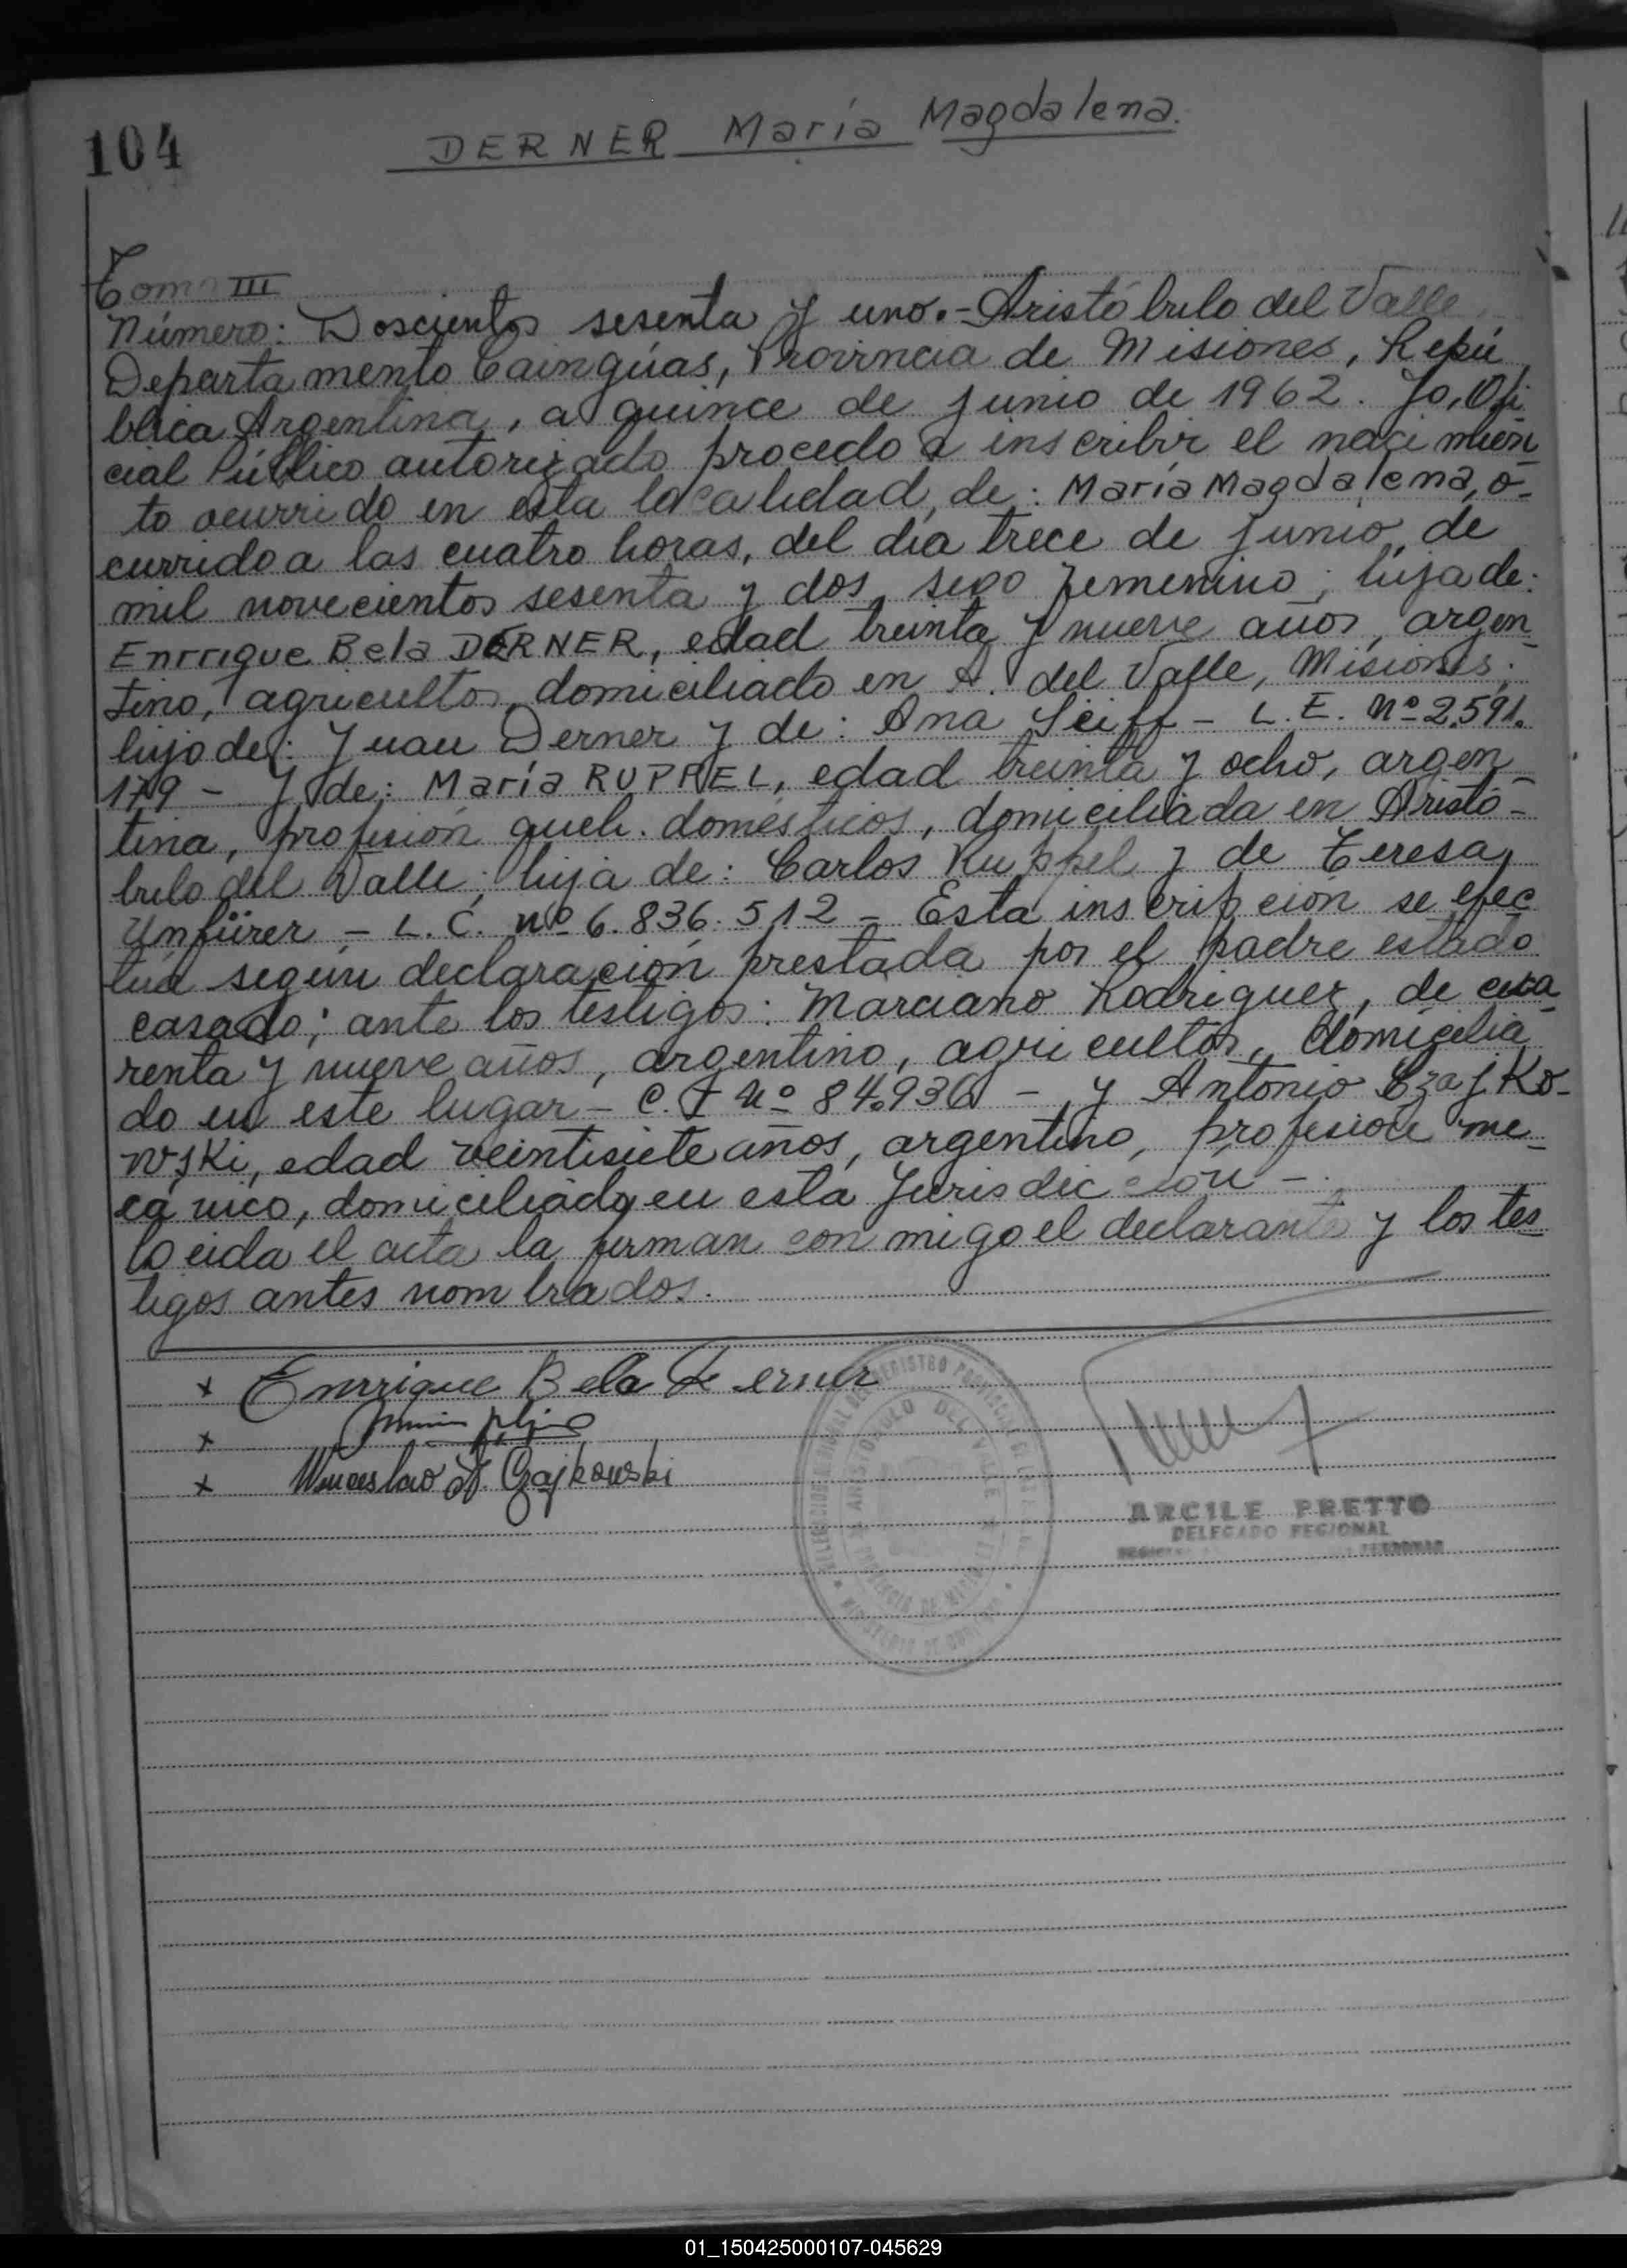 104
DERNER María Magdalena.
Tomo III
Número: Doscientos sesenta y uno.- Aristóbulo del Valle,
Departamento Cainguás, Provincia de Misiones, Repú
blica Argentina, a quince de junio de 1962. Yo, Ofi
cial Público autorizado procedo a inscribir el nacimien
to ocurrido en esta localidad, de: María Magdalena, o-
currido a las cuatro horas, del día trece de junio, de
mil novecientos sesenta y dos, sexo femenino; hija de:
Enrrique Bela DERNER, edad treinta y nueve años, argen
tino, agricultor, domiciliado en A. del Valle, Misiones;
hijo de: Juan Derner y de: Ana Seiff - L.E. Nº 2.591.
179 - Y de: María RUPPEL, edad treinta y ocho, argen
tina, profesión queh. domésticos, domiciliada en Aristó-
bulo del Valle; hija de: Carlos Ruppel y de Teresa
Unfürer - L.C. nº 6.836.512 - Esta inscripción se efec
tua según declaración prestada por el padre estado
casado; ante los testigos: Marciano Rodriguez, de cua
renta y nueve años, argentino, agricultor, domicilia
do en este lugar - C.I Nº 84.936 - y Antonio Czajko-
wski, edad veintisiete años, argentino, profesión me
cánico, domiciliado en esta Jurisdicción -.
Leida el acta la firman conmigo el declarante y los tes
tigos antes nombrados.
x Enrrique Bela Derner
x
x Wenceslao A. Czajkowski
ARISTOBULO DEL VALLE
ARCILE PRETTO
DELEGADO REGIONAL
01_150425000107-045629